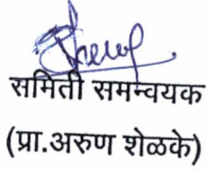 समिती समन्वयक
(प्रा.अरुण शेळके)